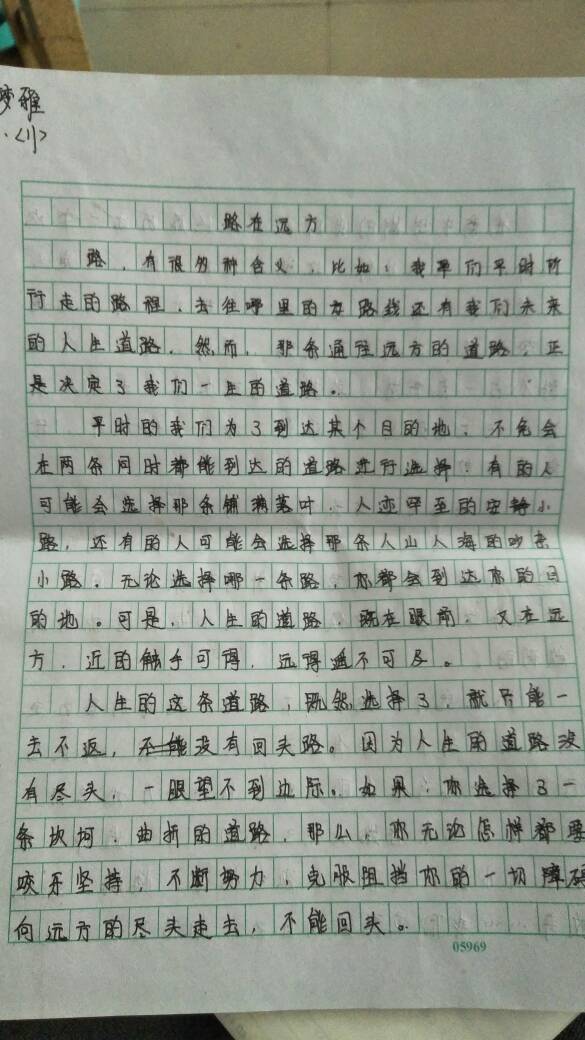 梦雅
<1>
路在远方
路,有很多种含义,比如:我们平时所
行走的路程、去往哪里的路线还有我们未来
的人生道路。然而,那条通往远方的道路,正
是决定了我们一生的道路。
平时的我们为了到达某个目的地,不免会
在两条同时都能到达的道路进行选择:有的人
可能会选择那条铺满落叶、人迹罕至的安静小
路,还有的人可能会选择那条人山人海的吵杂
小路。无论选择哪一条路,你都会到达你的目
的地。可是,人生的道路,既在眼前,又在远
方,近的触手可得,远得遥不可及。
人生的这条道路,既然选择了,就只能一
去不返,没有回头路。因为人生的道路没
有尽头,一眼望不到边际。如果,你选择了一
条坎坷、曲折的道路,那么,你无论怎样都要
咬牙坚持,不断努力,克服阻挡你的一切障碍
向远方的尽头走去,不能回头。
05969